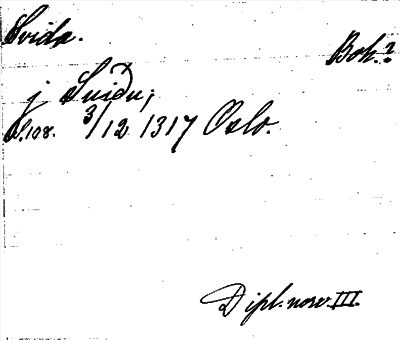 Svida.
Boh.?
j Suiðu;
S.108. 3/12 1317 Oslo.
Dipl. norv. III.